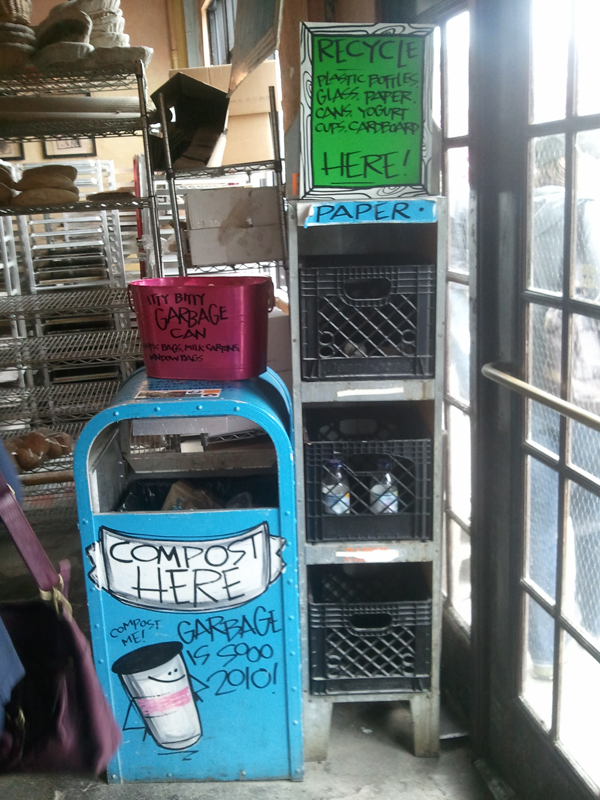 RECYCLE
PLASTIC BOTTLES,
GLASS, PAPER,
CANS, YOGURT
CUPS, CARDBOARD
HERE!
PAPER
ITTY BITTY
GARBAGE
CAN
BAGS, MILK CARTONS,
WINDOW BAGS
COMPOST
HERE
COMPOST
ME!
GARBAGE
IS SOOO
2010!